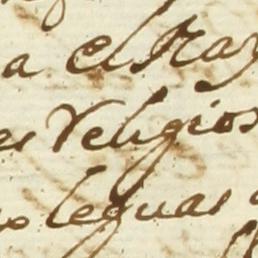 a el Ray
es Religios
leguas